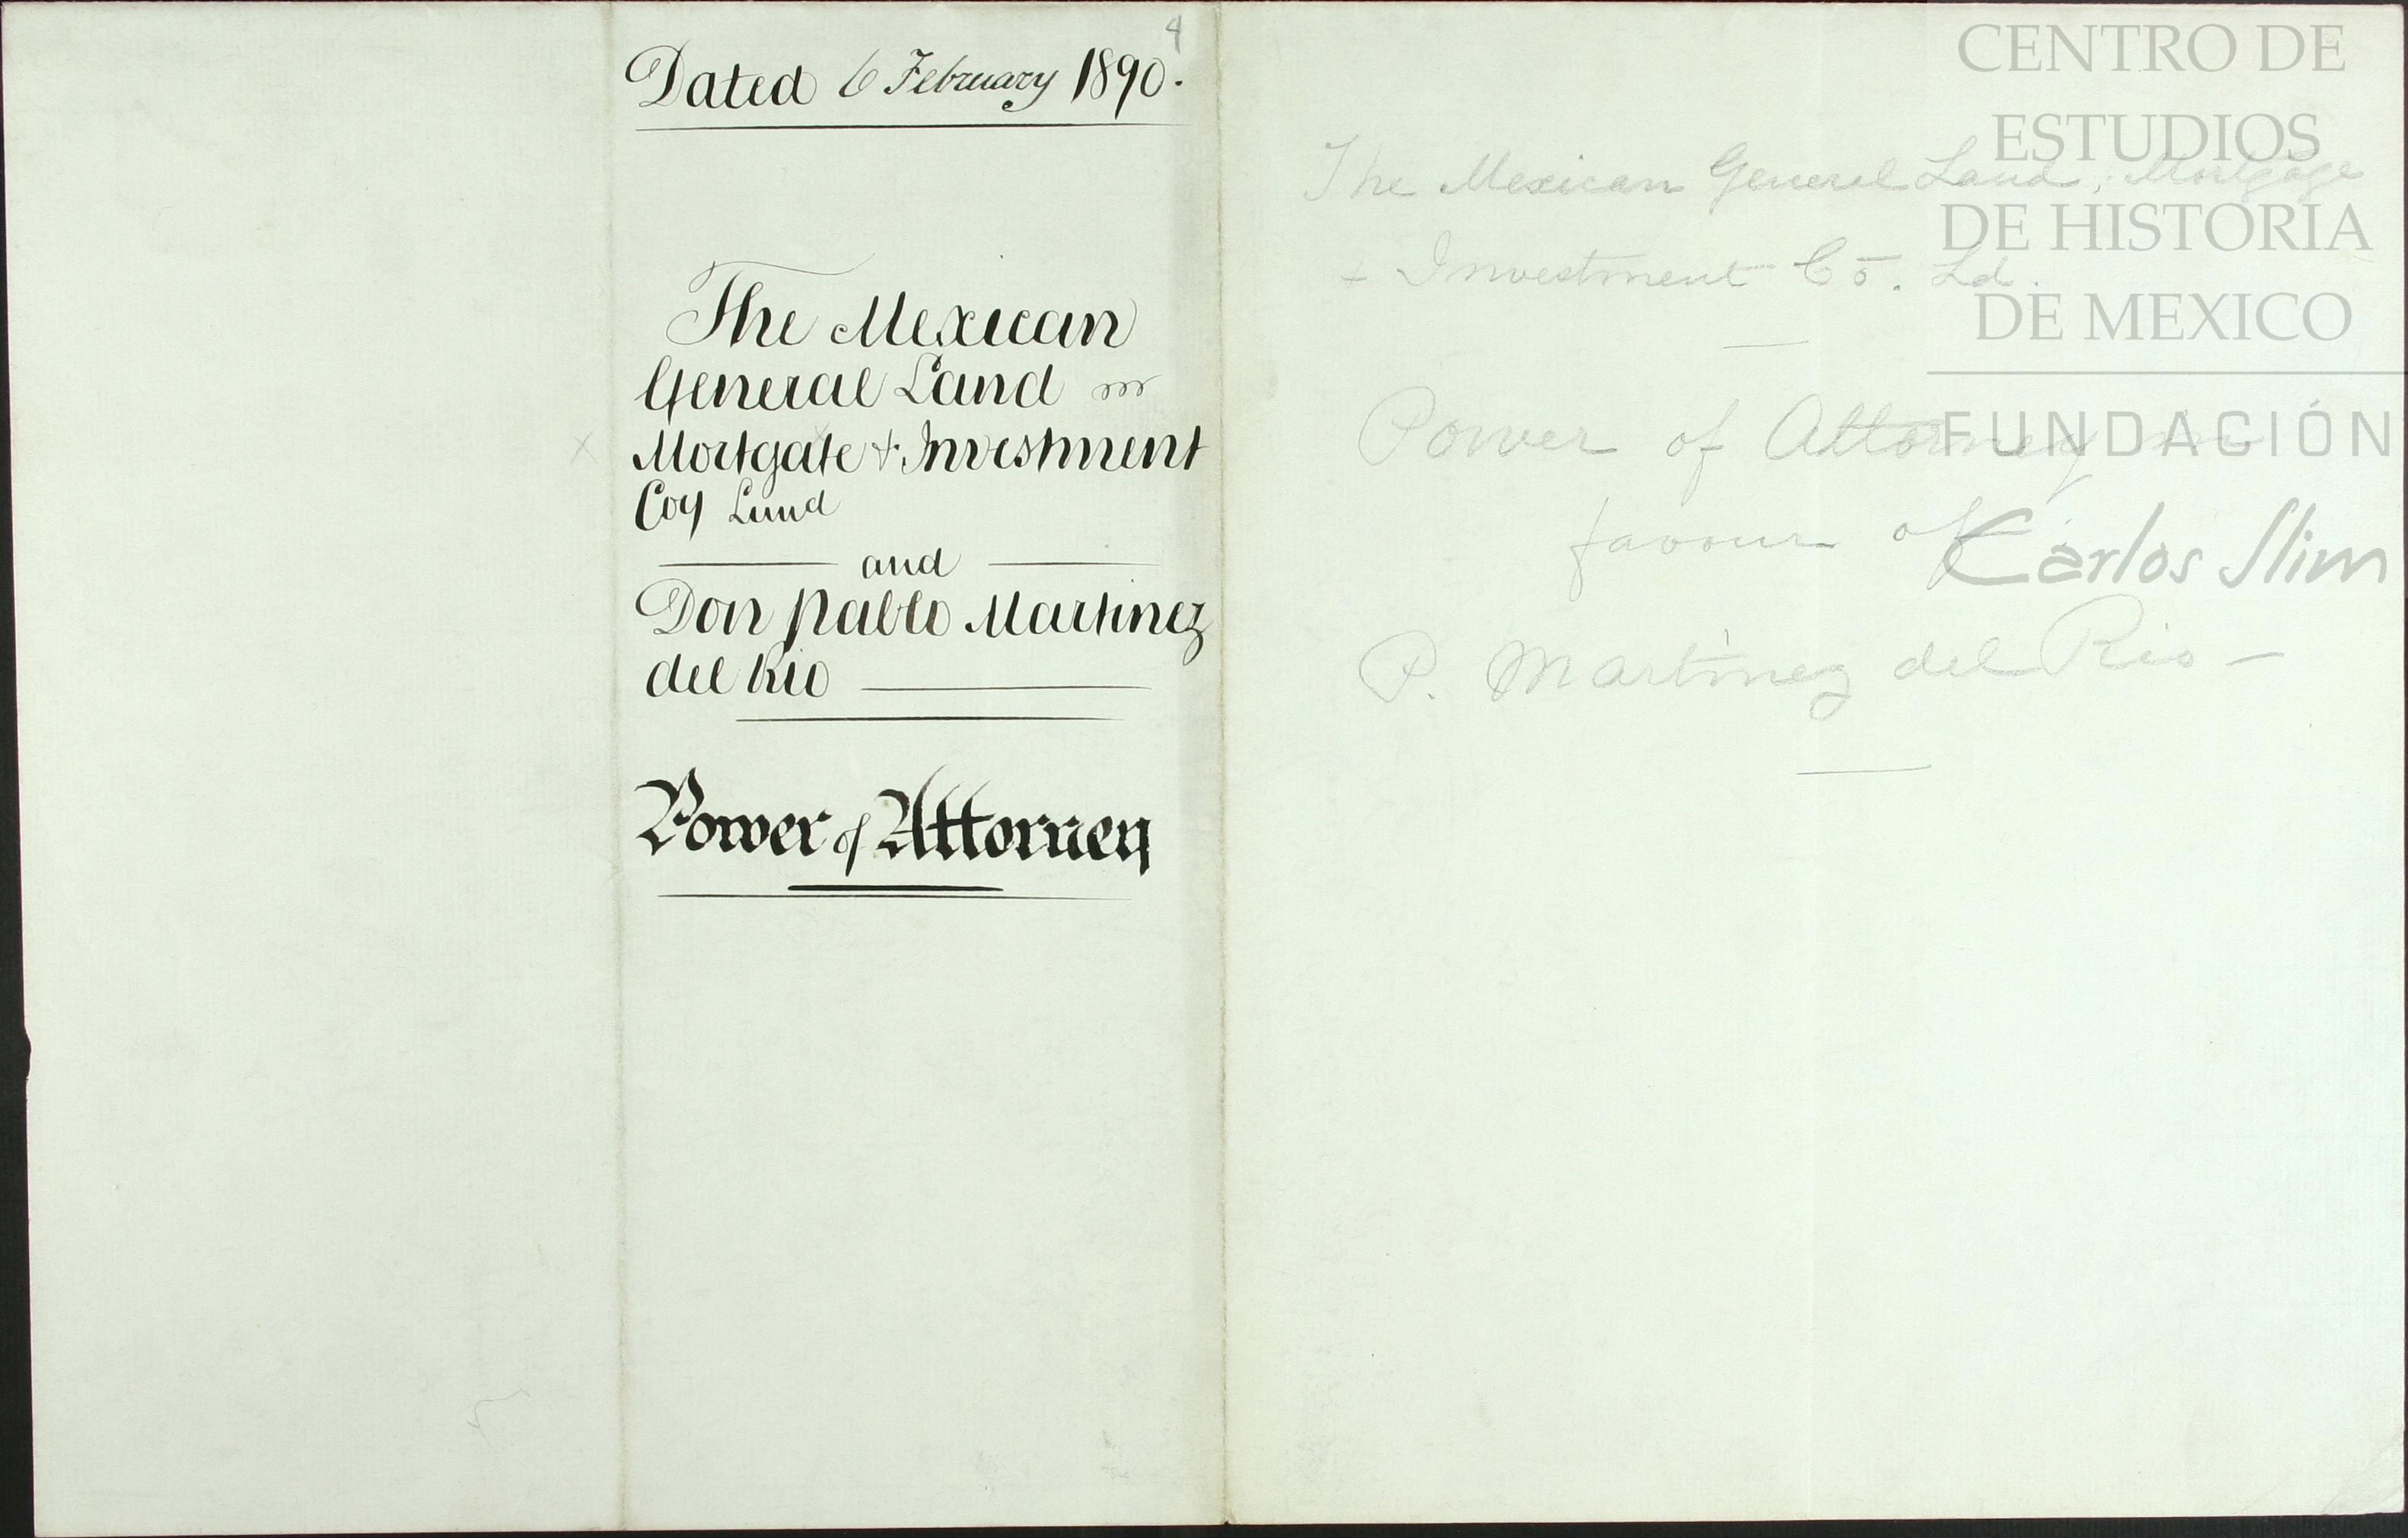 4
Dated 6 February 1890.
The Mexican
General Land
Mortgate & Investment
Coy Limd
and
Don Pablo Martinez
del Rio
Power of Attorney
The Mexican General Land, Mortgage
& Investment Co. Ld.
Power of Attorney in
favour of
P. Martinez del Rio -
CENTRO DE
ESTUDIOS
DE HISTORIA
DE MEXICO
FUNDACIÓN
Carlos Slim